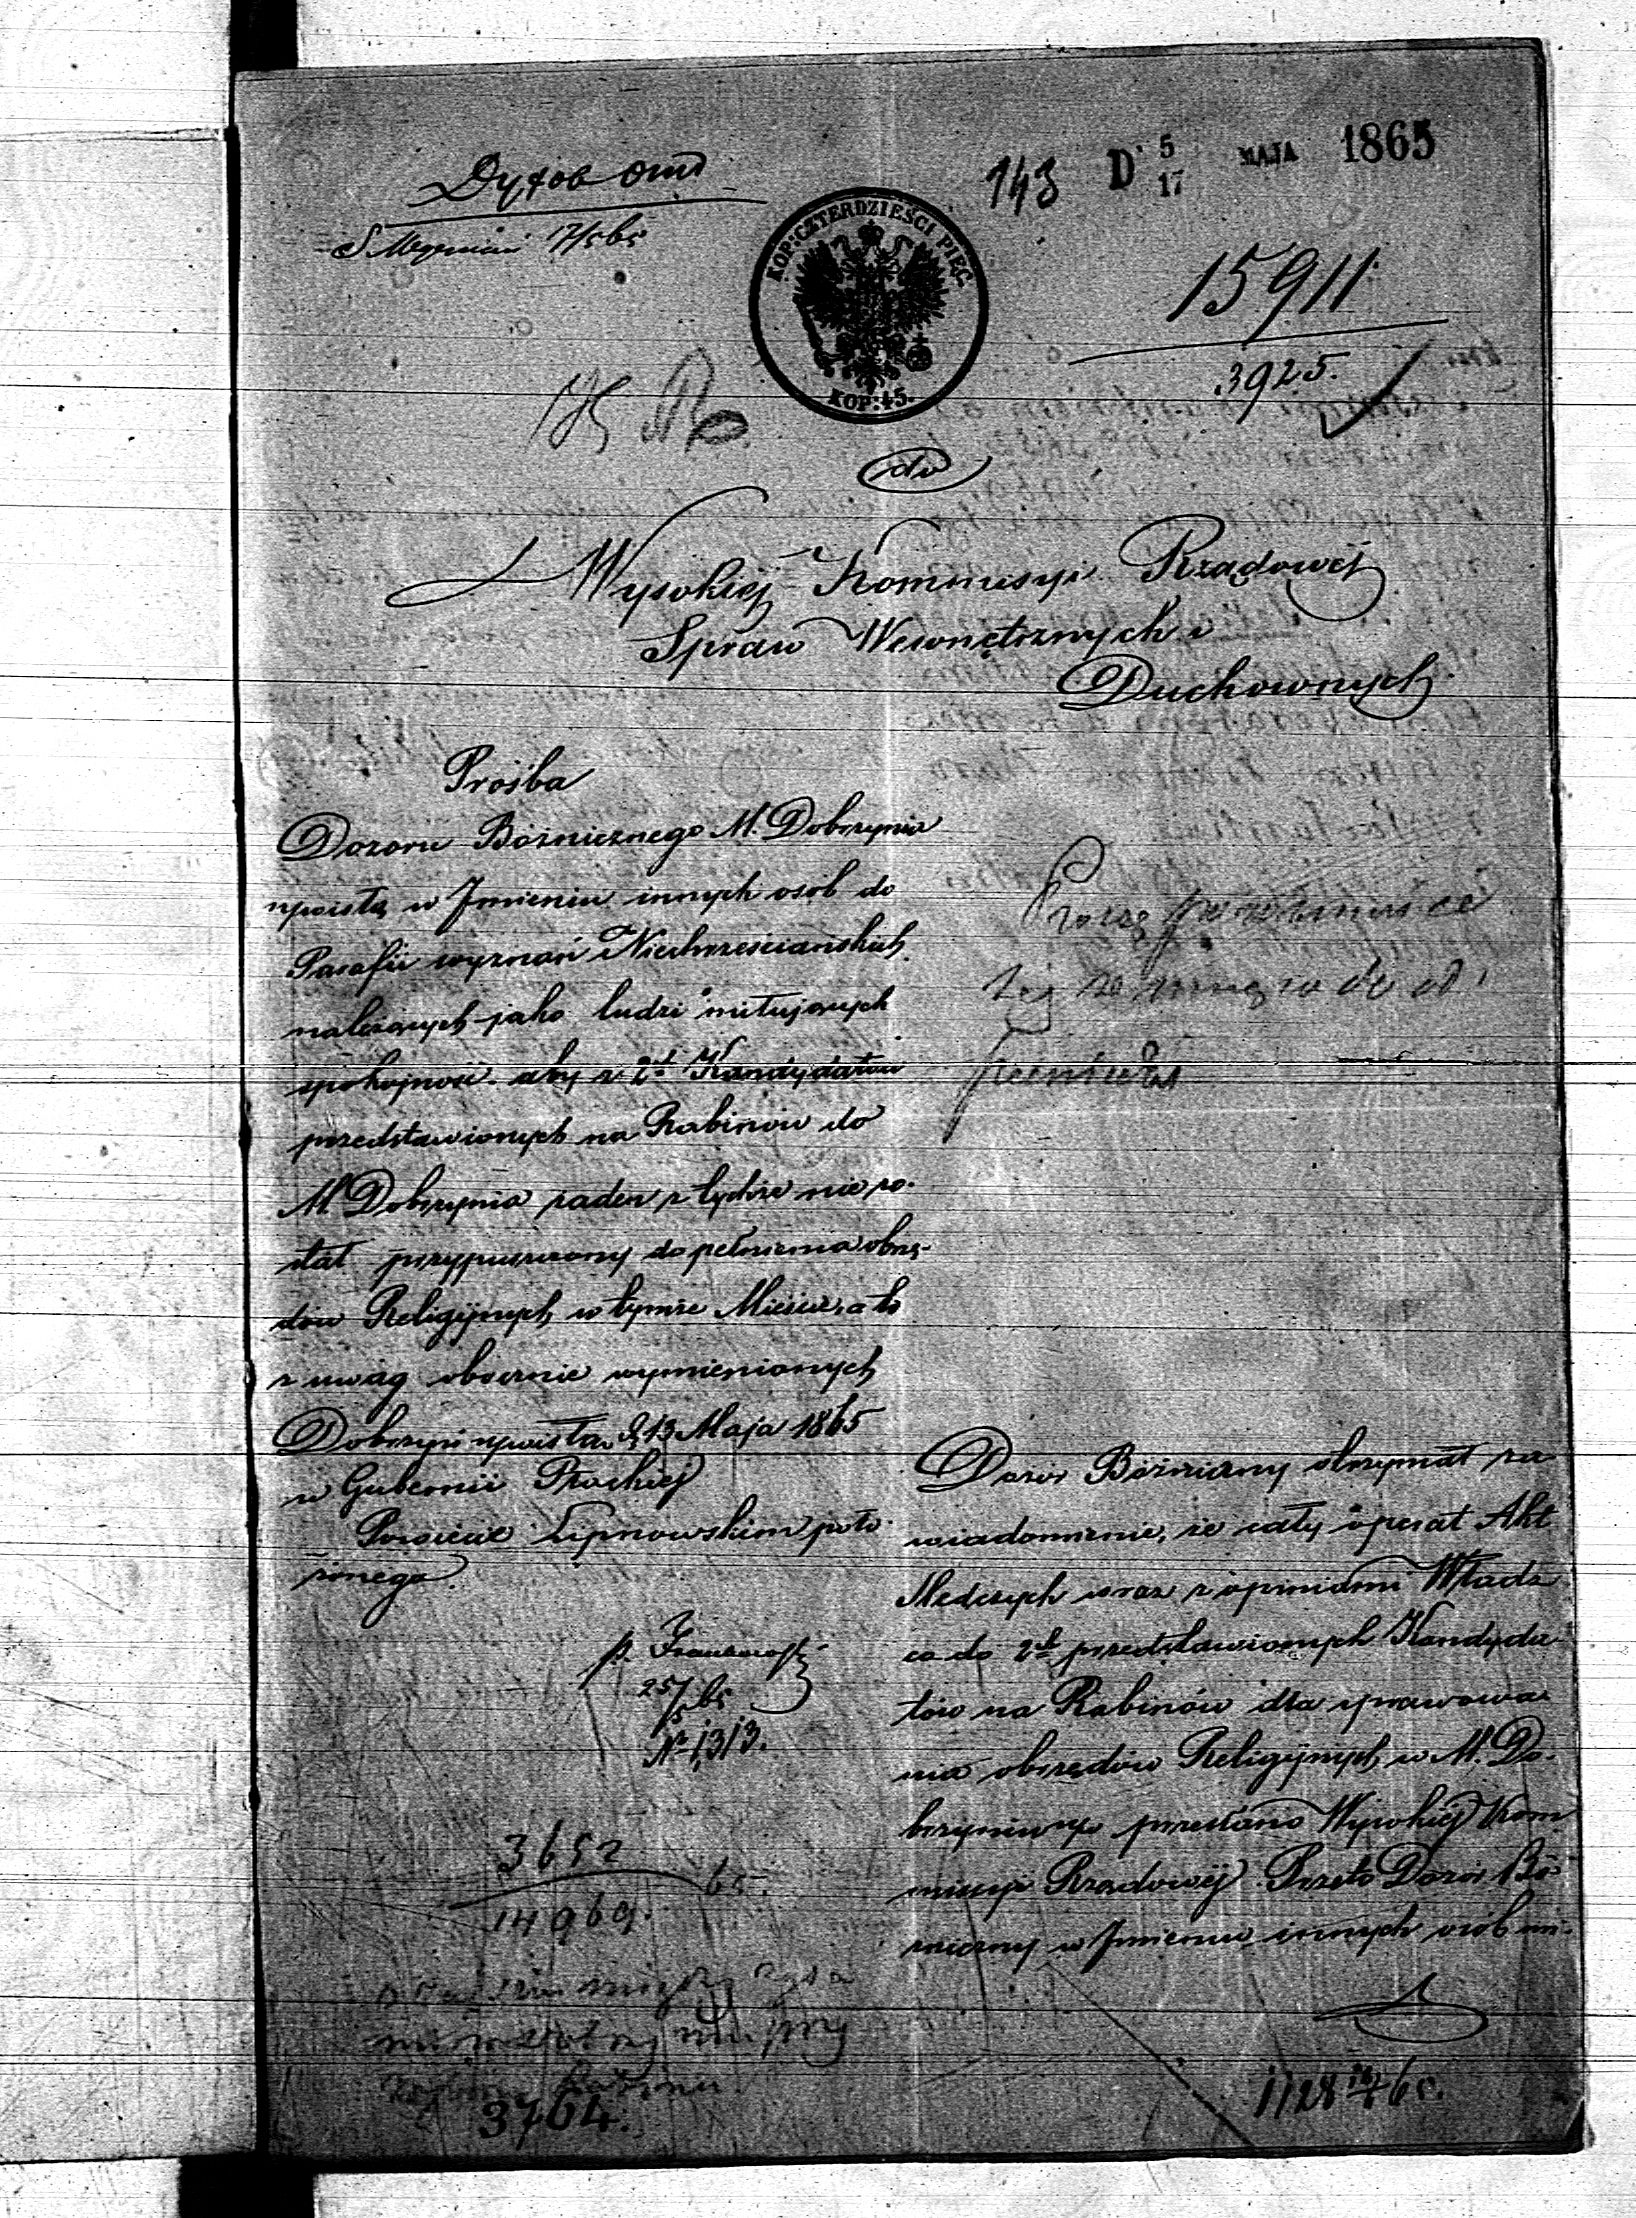 143 D 5/17 MAJA 1865
KOP: CZTERDZIEŚCI PIĘĆ.
KOP: 45.
15911
3925.
do
Wysokiej Kommissyi Rządowej
Spraw Wewnętrznych i
Duchownych.
Prośba
Dozoru Bóżnicznego M. Dobrzynia
n/wisłą w Jmieniu innych osób do
Parafii wyznań Niechrześciańskich
należących jako ludzi miłujących
spokojność aby z 2ch Kandydatów
przedstawionych na Rabinów do
M. Dobrzynia żaden z tychże nie zo-
stał przypuszczony do pełnienia obrzę-
dów Religijnych w tymże Mieście, a to
z uwag obocznie wymienionych
Dobrzyń n/wisłą d. 13 Maja 1865
w Gubernii Płockiej
Powiecie Lipnowskim poło-
żonego.
25/5 65
№ 1313.
3652
14969. 65.
3704.
Proszę
Dozór Bóżniczny otrzymał za-
wiadomienie, że cały operat Akt
Śledczych wraz z opiniami Władz
co do 2ch przedstawionych Kandyda-
tów na Rabinów dla sprawowa-
nia obrzędów Religijnych w M. Do-
brzyniu n/w przesłano Wysokiej Kom-
missyi Rządowej. Przeto Dozór Bó-
żniczny w Jmieniu innych osób mi-
1128